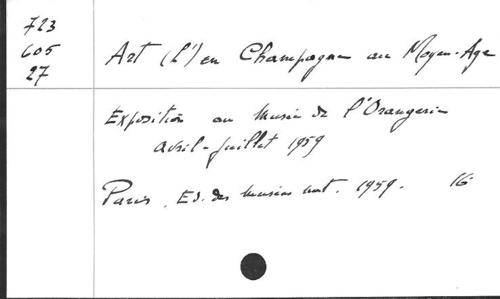 723
605
27
Art (L') en Champagne au Moyen-Age
Exposition au Musée de l'Orangerie
avril-juillet 1959
Paris, Ed. des Musées nat. 1959. 16